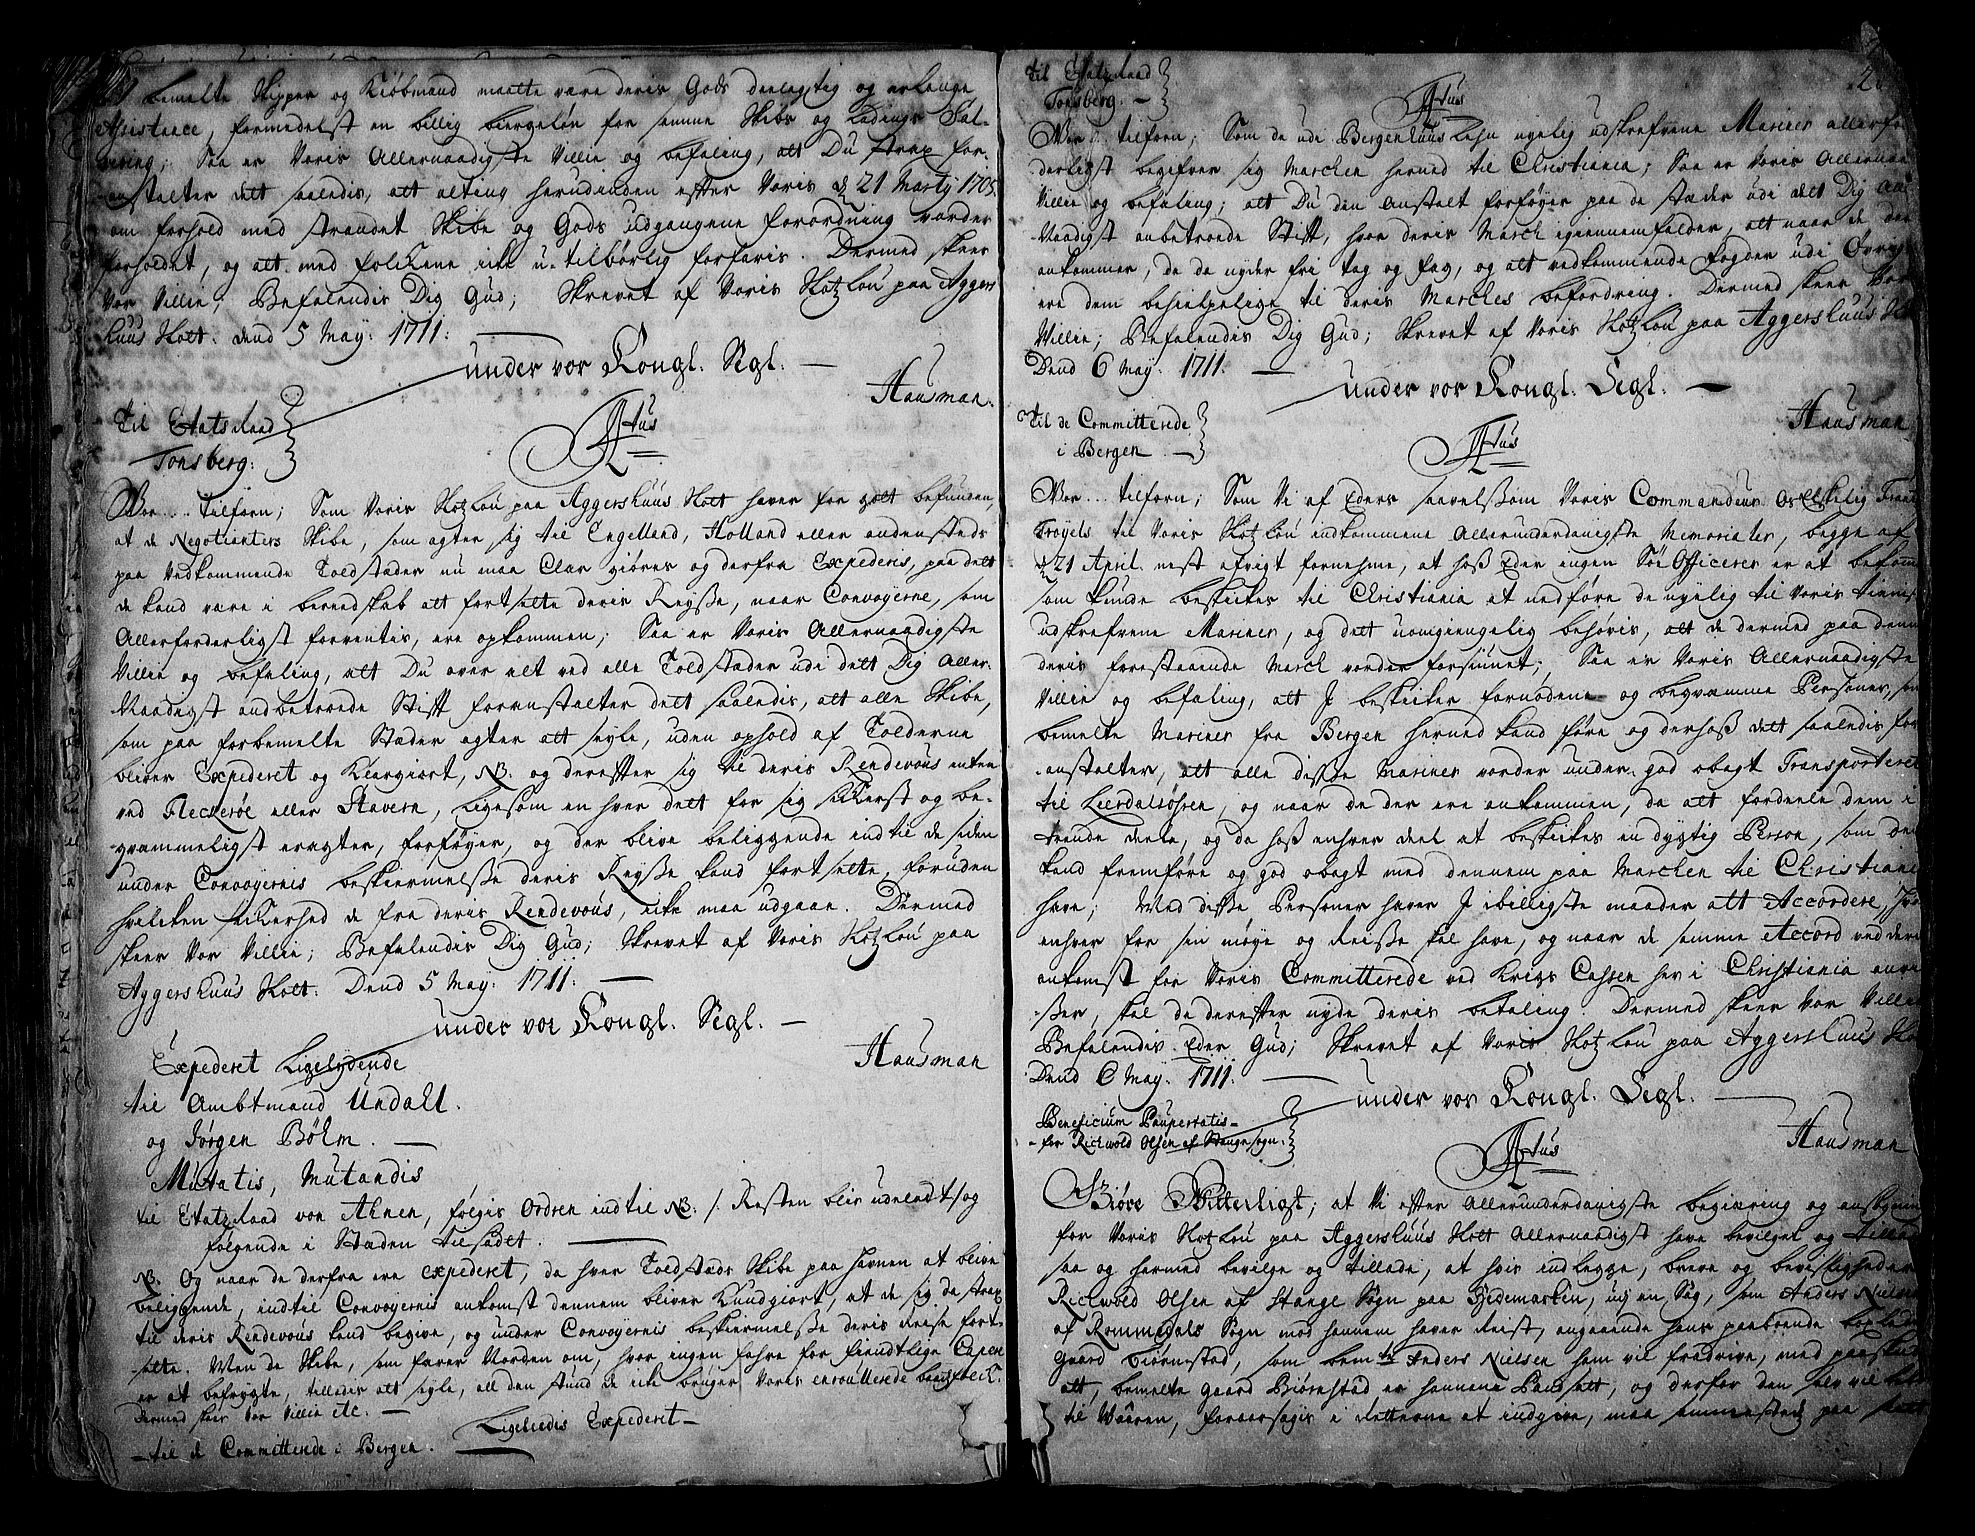 bemelte Skipper og Kiøbmand maatte være deris Gods deelagtig og erlange
Assistence, formedelst en billig biergeløn for samme Skibs og Ladings Sal-
vering; Saa er Voris Allernaadigste Villie og befaling, att Du strax for-
anstalter det saaledis, att alting herudinden efter Voris d 21 Marty 1705
om forhold med strandet Skibe og Gods udgangene forordning vorder
forholdet, og att med folckene icke u-tilbørlig forfaris. Dermed skeer
Vor Villie; Befalendis Dig Gud; Skrevet af Voris Slotzlou paa Aggers
huus Slott. Dend 5 May: 1711.
under vor Kongl. Segl.
Hausman.
Til Etatsraad
Tonsberg.
Vor... tilforn; Som Voris Slotzlou paa Aggershuus Slott haver for gott befunden,
at de Negotianters Skibe, som agter sig til Engelland, Holland eller andensteds
paa Vedkommende Toldstæder nu maa Clar giøres og derfra Expederis, paa dett
de kand være i beredskab att fortsette deris Reyße, naar Convoyerne, som
Allerforderligst forventis, ere opkommen; Saa er Voris Allernaadigste
Villie og befaling, att Du over alt ved alle Toldstæder udi dett Dig Aller-
Naadigst anbetroede Stift foranstalter det saaledis, att alle Skibe,
som paa forbemelte Stæder agter att seyle, uden ophold af Tolderne
bliver Expederet og Klargiort, NB. og derefter sig til deris Rendevous enten
ved Fleckerøe eller Stavern, ligesom en hver dett for sig sickerst og be-
qvemmeligst eragter, forføyer, og der blive beliggende indtil de siden
under Convoyernis beskiermelße deris Reyße kand fortsette, foruden
hvilcken sickerhed de fra deris Rendevous, icke maa udgaae. Dermed
skeer Vor Villie; Befalendis Dig Gud; Skrevet af Voris Slotzlou paa
Aggershuus Slott. Dend 5 May: 1711.
under vor Kongl. Segl.
Hausman
Expederet Ligelydende
til Ambtmand Undall.
og Jørgen Bølm.
Mutatis, Mutandis
til Etatzraad von Ahnen, følgis Ordren indtil NB: /: Resten blir udeladt og
følgende i Stæden tilsadet.
NB. Og naar de derfra ere expederet, da hver Toldstæds Skibe paa havnen at blive
beliggende, indtil Convoyernis ankomst dennem bliver Kundgiort, at de sig da strax
til deris Rendevous kand begive, og under Convoyernis beskiermelße deris Reise fort-
sette. Men de Skibe, som farer Norden om, hvor ingen fahre for fiendtlige Caper
er at befrygte, tilledis att seyle, all den stund de icke bruger
Dermed skeer Vor Villie etc.
Ligeledis Expederet
til de Committerede i Bergen.
Til Etatzraad
Tonsberg.
Vor... tilforn; Som de udi Bergenhuus Lehn nyelig udskrefvene Mariner allerfor
derligst begifver sig Marchen herned til Christiania; Saa er Voris Allernaa
Villie og befaling; att Du den Anstalt forføyer paa de stæder udi dett Dig All
Naadigst anbetroede Stift, hvor deris March igiennemfalder, att naar de der
ankommer, de da nyder fri tag og fag, og att vedkommende fogder udi Øvrigt
ere dem behielpelige til deris Marches befordring. Dermed skeer Vor
Villie; Befalendis Dig Gud; Skrevet af Voris Slotzlou paa Aggershuus Sl
Dend 6 May: 1711.
under vor Kongl. Segl.
Hausman
Til de Committerede
i Bergen.
Vor... tilforn; Som Vi af Eders saavelßom Voris Commandeur Os Elskelig
Trøyels til Voris Slotzlou indkommene Allerunderdanigste Memorialer, begge af
d 21 April. nest afvigt fornehme, at hoß Eder ingen Søe Officerer er at bekom
som kunde beskickes til Christiania at nedføre de nyelig til Voris tienest
udskrefvene Mariner, og dett uomgiengelig behøvis, att de dermed paa denne
deris forestaaende March vorder forsiunet; Saa er Voris Allernaadigste
Villie og befaling, att I beskicker fornødene og beqvemme Personer, som
bemelte Mariner fra Bergen herned kand føre og derhoß dett saaledis for
anstalter, att alle diße Mariner vorder under god obagt Transporteret
til Leerdalsøhren, og naar de der ere ankommen, da att fordeele dem i
trende deele, og da hoß enhver deel at beskickes en dygtig Person, som dem
kand fremføre og god obagt med dennem paa Marchen til Christiania
have; Med diße Personer haver I ibilligste maader att Accordere, hvad
enhver for sin møye og Reiße skal have, og naar de samme Accord ved deris
ankomst for Voris Committerede ved Krigs Cassen her i Christiania anvi
ßer, skal de derefter nyde deris betaling. Dermed skeer Vor Villie
Befalendis Eder Gud; Skrevet af Voris Slotzlou paa Aggershuus Slo
Dend 6 May: 1711.
under vor Kongl. Segl.
Hausman
Beneficium Paupertatis
for Richvold Olsen af Stange sogn.
Giøre Witterligt; at Vi efter Allerunderdanigste begiæring og ansøgning
for Voris Slotzlou paa Aggershuus Slott Allernaadigst have bevilget og tilladt
saa og hermed bevilge og tillade, at hvis indlegge, breve og bevißligheder
Richvold Olsen af Stange Sogn paa Hedemarken, udj en Sag, som Anders Nielsen
af Rommedals Sogn mod hannem haver Reist, angaaende hans paaboende
Gaard Biørnstad, som bemte Anders Nielsen ham vil fradrive, med paaskud
att, bemelte gaard Biørnstad er hannem Pandsatt, og derfor den selv vil
til Wæren, foraarsagis i Retterne at indgive, maa annamestes paa slett